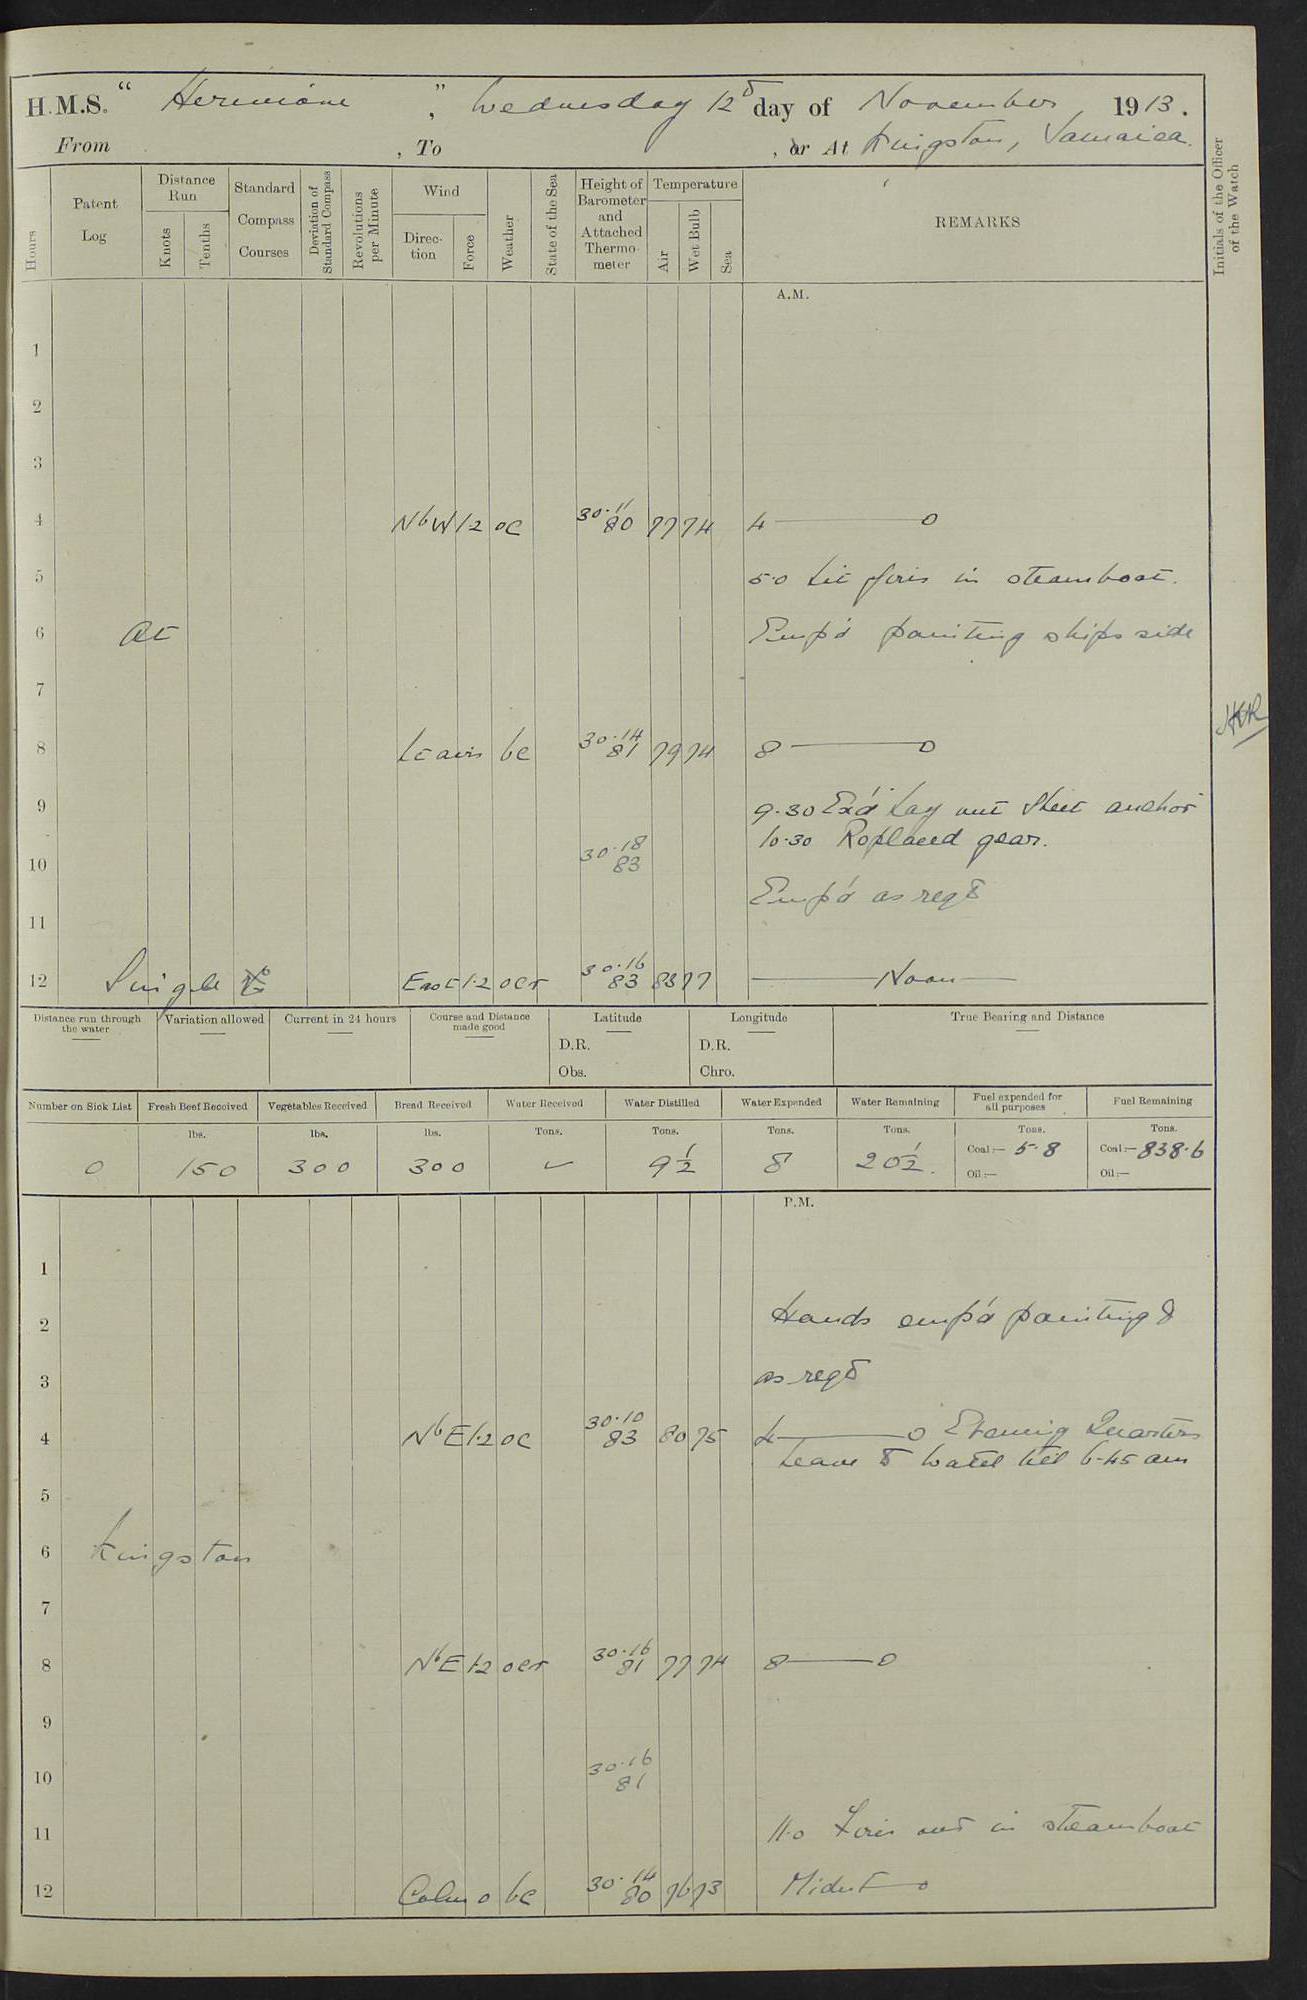 H.M.S. "Hermione", Wednesday 12th day of November 1913.
From , To , or At Kingston, Jamaica.
Hours
Patent Log
Distance Run
Knots
Tenths
Standard Compass Courses
Deviation of Standard Compass
Revolutions per Minute
Wind
Direction
Force
Weather
State of the Sea
Height of Barometer and Attached Thermometer
Temperature
Air
Wet Bulb
Sea
REMARKS
Initials of the Officer of the Watch
A.M.
1
2
3
4 NbW 1.2 oc 30.11 80 77 74 4 — 0
5 5.0 Lit fires in steamboat.
6 At Emp'd painting ships side
7
8 Lt airs bc 30.14 81 79 74 8 — 0
9 9.30 Ex'd Lay out Sheet anchor
10.30 Replaced gear.
10 30.18 83
Emp'd as reqd
11
12 Single East 1.2 ocr 30.16 83 83 77 Noon
Distance run through the water
Variation allowed
Current in 24 hours
Course and Distance made good
Latitude
D.R.
Obs.
Longitude
D.R.
Chro.
True Bearing and Distance
Number on Sick List
Fresh Beef Received
Vegetables Received
Bread Received
Water Received
Water Distilled
Water Expended
Water Remaining
Fuel expended for all purposes
Fuel Remaining
lbs. lbs. lbs. Tons. Tons. Tons. Tons. Tons. Tons.
0 150 300 300 ✓ 9½ 8 20½. Coal:— 5.8 Coal:— 838.6
Oil:— Oil:—
P.M.
1
2 Hands emp'd painting &
3 as reqd
4 NbE 1.2 oc 30.10 83 80 75 4 — 0 Evening Quarters
Leave to Watch till 6.45 am
5
6 Kingston
7
8 NbE 1.2 ocr 30.16 81 77 74 8 — 0
9
10 30.16 81
11 11.0 Fires out in steamboat
12 Calm 0 bc 30.14 80 76 73 Midnt — 0